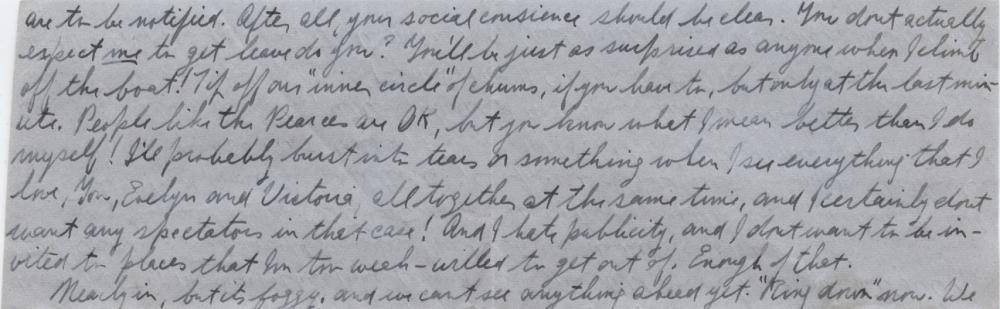 are to be notified. After all, your social consience should be clear. You dont actually
expect me to get leave do you? You'll be just as surprised as anyone when I climb
off the boat! Tip off our "inner circle" of chums, if you have to, but only at the last min-
ute. People like the Pearces are OK, but you know what I mean better than I do
myself! I'll probably burst into tears or something when I see everything that I
love, You, Evelyn and Victoria, all together at the same time, and I certainly dont
want any spectators in that case! And I hate publicity, and I dont want to be in-
vited to places that Im too weak-willed to get out of. Enough of that.
Nearly in, but its foggy, and we cant see anything ahead yet. "Ring down" now. We